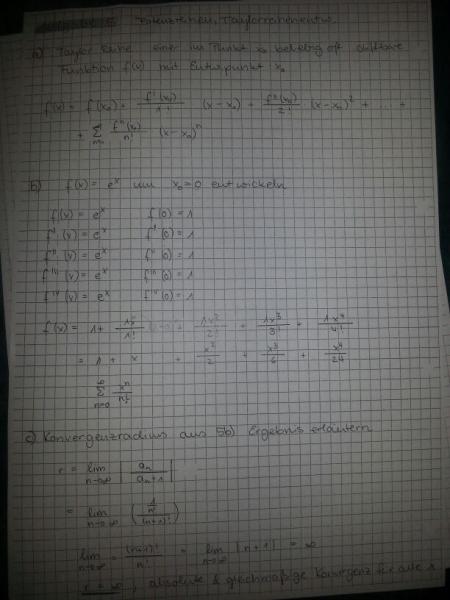 Aufgabe 5 Potenzreihen, Taylorreihenentw.
a) Taylor Reihe einer im Punkt x₀ beliebig oft diffbare
Funktion f(x) mit Entw.punkt x₀
f(x) = f(x₀) + f'(x₀)/1! (x-x₀) + f''(x₀)/2! (x-x₀)² + ... +
+ ∑ fⁿ(x₀)/n! (x-x₀)ⁿ
b) f(x) = eˣ um x₀=0 entwickeln
f(x) = eˣ f(0) = 1
f'(x) = eˣ f'(0) = 1
f''(x) = eˣ f''(0) = 1
f'''(x) = eˣ f'''(0) = 1
f''''(x) = eˣ f''''(0) = 1
f(x) = 1 + 1x/1! + 1x²/2! + 1x³/3! + 1x⁴/4!
= 1 + x + x²/2 + x³/6 + x⁴/24
∞ ∑ n=0 xⁿ/n!
c) Konvergenzradius aus 5b) Ergebnis erläutern
r = lim n→∞ | aₙ / aₙ+1 |
= lim n→∞ ( 1/n! / 1/(n+1)! )
lim n→∞ = (n+1)!/n! = lim n→∞ |n+1| = ∞
r = ∞, absolute & gleichmäßige Konvergenz für alle